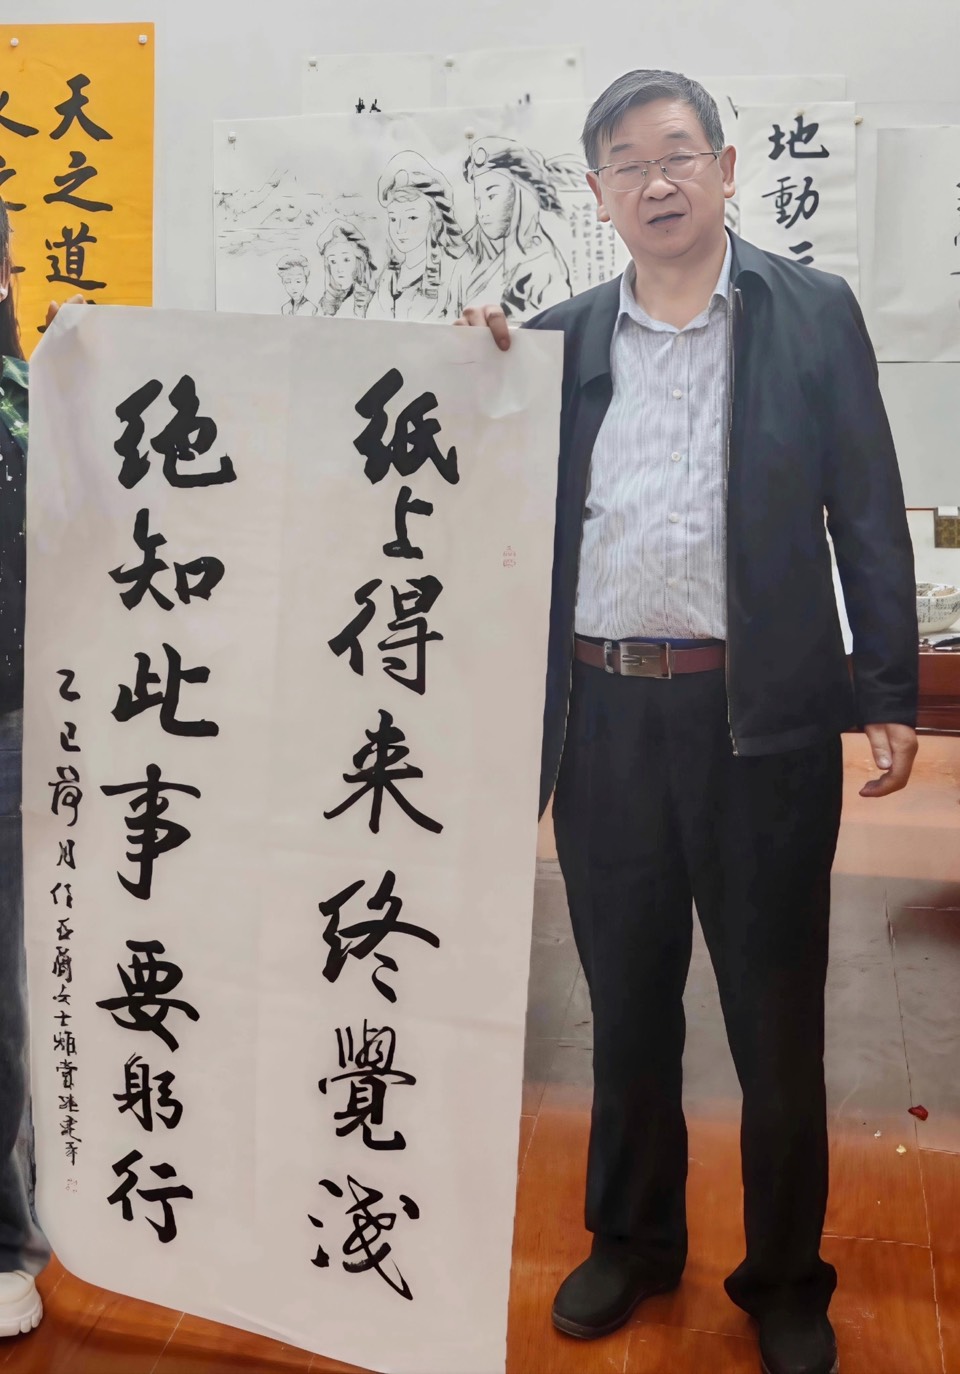 紙上得来终覺淺
绝知此事要躬行
乙巳荷月
女士雅賞
天之道
地動